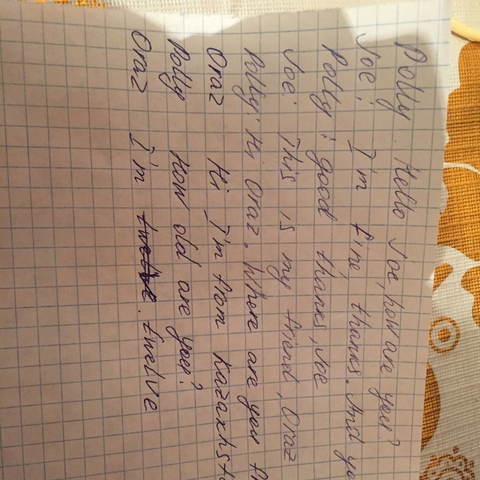 Polly. Hello Joe, how are you?
Joe: I'm fine thanks. And yo
Polly: good thanks, Joe
Joe: This is my friend, Oraz
Polly: Hi Oraz, Where are you f
Oraz Hi I'm from Kazakhsta
Polly How old are you?
Oraz I'm twelve. twelve